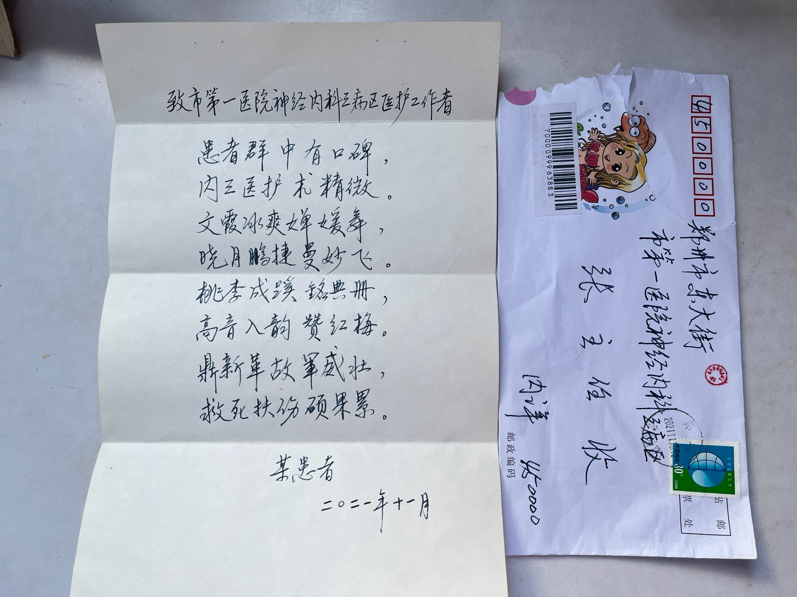 致市第一医院神经内科三病区医护工作者
患者群中有口碑，
内三医护术精微。
文霞冰爽婵媛舞，
晓月鹏捷曼妙飞。
桃李成蹊铭典册，
高音入韵赞红梅。
鼎新革故军威壮，
救死扶伤硕果累。
某患者
二〇二一年十一月
450000
郑州市东大街
市第一医院神经内科三病区
张主任收
内详
邮政编码 450000